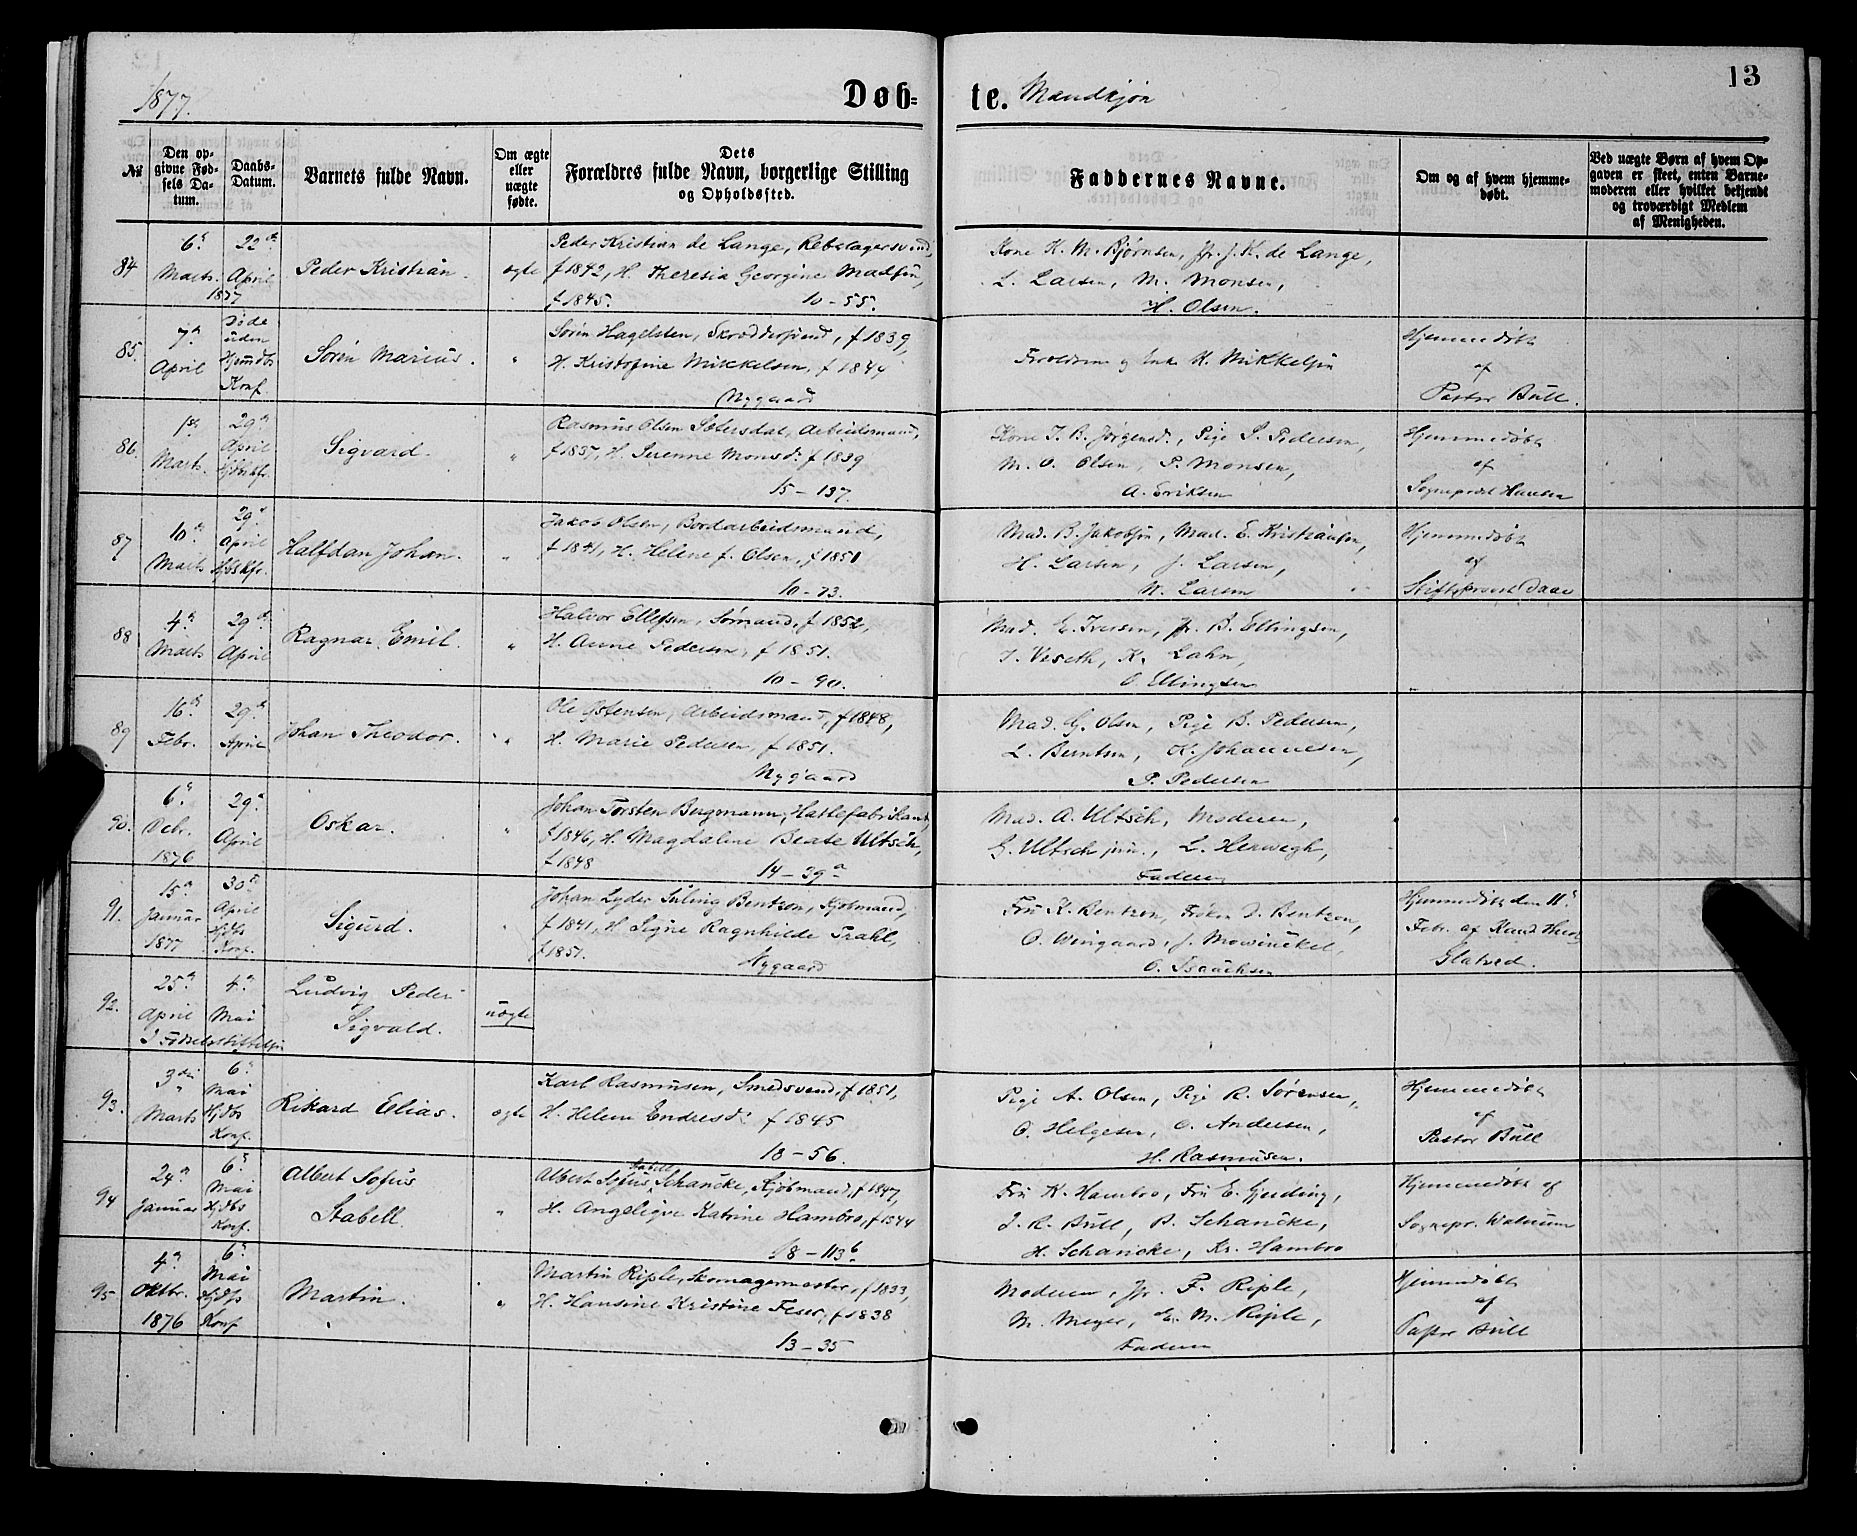 13
1877.
Døb-te. Mandkjøn
No.
Den op-
givne Fød-
sels Da-
tum.
Daabs-
Datum.
Barnets fulde Navn.
Om ægte
eller
uægte
fødte.
Dets
Forældres fulde Navn, borgerlige Stilling
og Opholdssted.
Faddernes Navne.
Om og af hvem hjemme-
døbt.
Ved uægte Børn af hvem Op-
gaven er skeet, enten Barne-
moderen eller hvilket bekjendt
og troværdigt Medlem
af Menigheden.
84
6te Marts 1877
22de April
Peder Kristian.
ægte
Peder Kristian de Lange, Rebslagersvend,
f 1842, H. Theresia Georgine Madsen,
f 1845. 10-55.
Kone H. M. Bjørnsen, Jfr. J. K. de Lange,
L. Larsen, M. Monsen,
H. Olsen.
85.
7de April
Døde uden Hjemdbs Konf.
Sørén Marius.
"
Sørén Hagelsten, Skræddersvend, f 1839,
H. Kristofine Mikkelsen, f 1844
Nygaard
Forældrene og Enke K. Mikkelsen
Hjemmedøbt
af
Pastor Bull.
86.
1ste Marts.
29de April Hjdbskf.
Sigvard.
"
Rasmus Olsen Sætersdal, Arbeidsmand,
f 1857, H. Serenne Monsd: f 1839
15-137.
Kone I. B. Jørgensd., Pige S. Pedersen,
M. O. Olsen, P. Monsen,
A. Eriksen
Hjemmedøbt
af
Sognepræst Hansen
87
10de Marts
29de April Hjdbskf.
Halfdan Johan.
"
Jakob Olsen, Bordarbeidsmand,
f 1841, H. Helene f. Olsen, f 1851
10-73.
Mad. B. Jakobsen, Mad. E. Kristiansen,
H. Larsen, J. Larsen,
N. Larsen
Hjemmedøbt
af
Stiftsprovst Daae
88
4de Marts
29de April
Ragnar Emil.
"
Halvor Ellefsen, Sømand, f 1852,
H. Anne Pedersen, f 1851.
10-90.
Mad. E. Iversen, Jfr. B. Ellingsen,
T. Veseth, K. Lahn,
O. Ellingsen
89
16de Febr.
29de April
Johan Theodor.
"
Ole Østensen, Arbeidsmand, f 1848,
H. Marie Pedersen, f 1851.
Nygaard
Mad. G. Olsen, Pige B. Pedersen,
L. Berntsen, K. Johannesen,
P. Pedersen
90.
6te Debr. 1876
29de April
Oskar.
"
Johan Torsten Bergmann, Hattefabrikand,
f 1846, H. Magdalene Beate Ultsch,
f 1848 14-39a
Mad. A. Ultsch, Moderen,
G. Ultsch jun., L. Herwegh,
Faderen
91.
15de Januar 1877
30te April Hjdbs Konf.
Sigurd.
"
Johan Lyder Suling Bentzon, Kjøbmand,
f 1841, H Signe Ragnhilde Prahl,
f 1851. Nygaard
Fru K. Bentzon, Frøken D. Bentzon,
O. Wingaard, J. Mowinckel,
O. Isachsen
Hjemmedøbt den 11te
Febr. af Kand. theol
Slatved.
92.
25de April
4de Mai
I Fødselsstiftelsen
Ludvig Peder
Sigvald.
uægte
93.
3die Marts
6te Mai Hjdbs Konf.
Rikard Elias.
ægte
Karl Rasmusen, Smedsvend, f 1851,
H. Helene Endresd: f 1845
18-56.
Pige A. Olsen, Pige R. Sørensen,
O. Helgesen, O. Andersen,
H. Rasmusen.
Hjemmedøbt
af
Pastor Bull
94
24de Januar
6te Mai Hjdbs Konf.
Albert Sofus
Stabell.
"
Albert Sofus Stabell Schancke, Kjøbmand, f 1847,
H. Angelique Katrine Hambro, f 1844
18-113b
Fru K. Hambro, Fru E. Gjerding,
J. R. Bull, B. Schancke,
H. Schancke, Kr. Hambro
Hjemmedøbt af
Sognepr. Walnum
95
4de Oktbr. 1876
6te Mai Hjdbs Konf
Martin.
"
Martin Riple, Skomagermester, f 1833,
H. Hansine Kristine Feser, f 1838
13-35
Moderen, Jfr. F. Riple,
M. Meyer, E. M. Riple,
Faderen
Hjemmedøbt
af
Pastor Bull